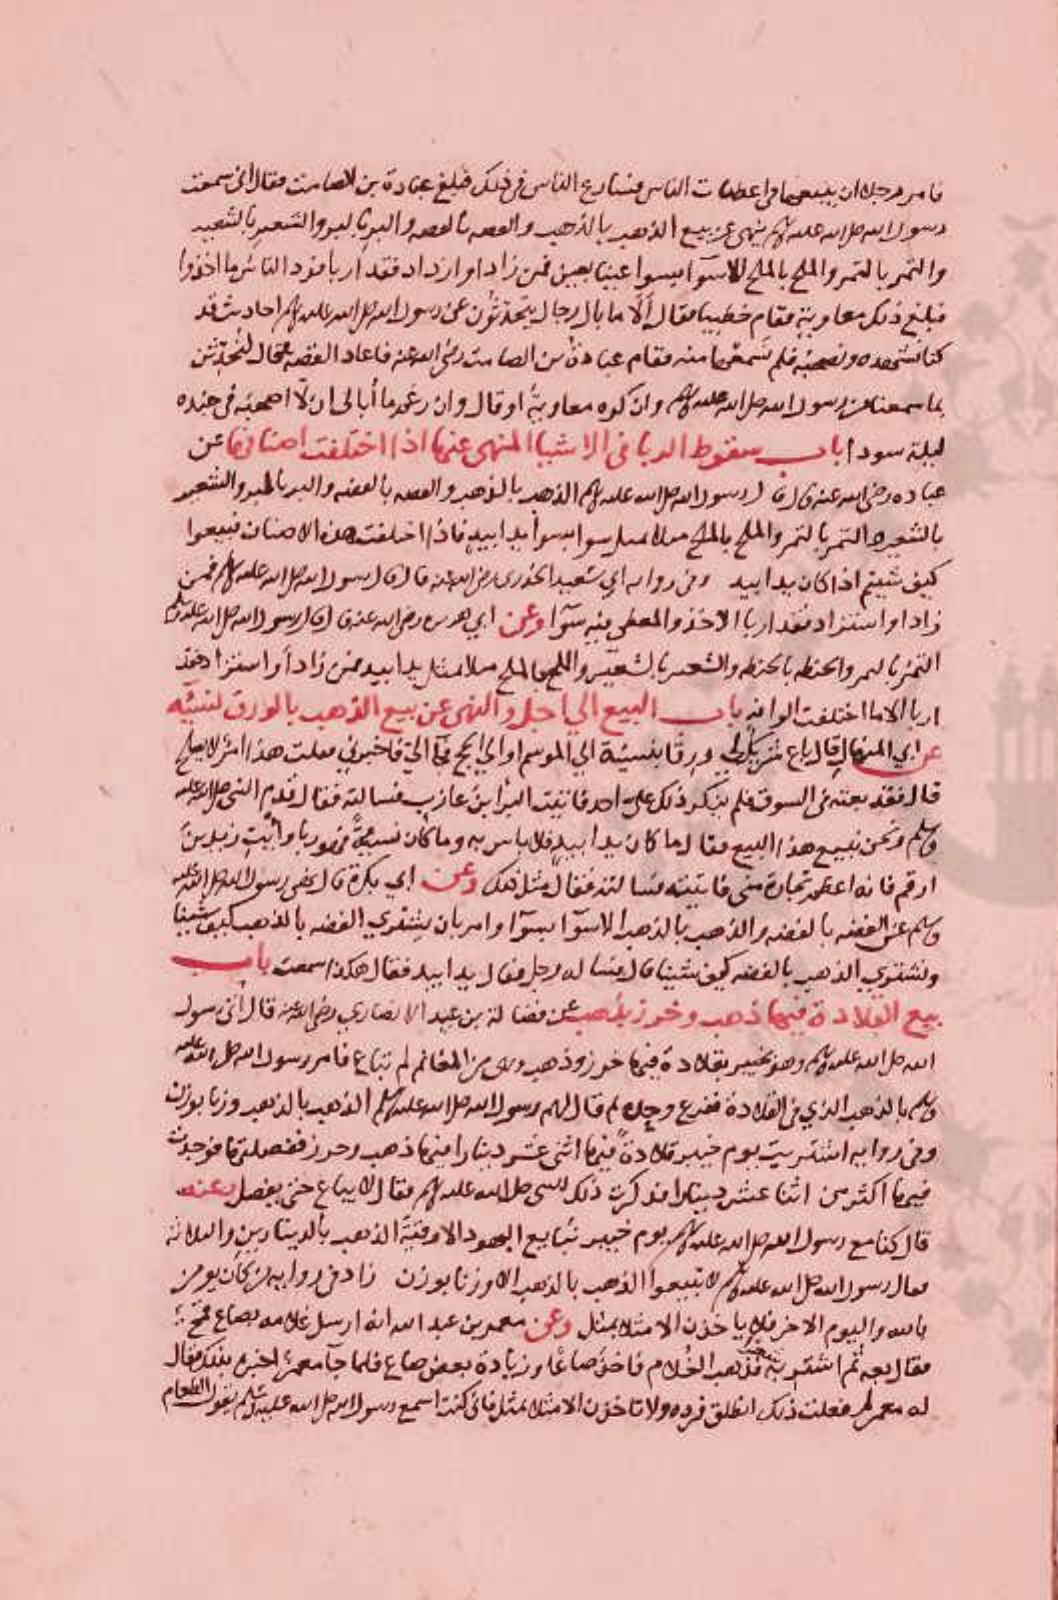 فامر رجلا ان يبيعها في اعطيات الناس فتسارع الناس في ذلك فبلغ عبادة بن الصامت فقال اني سمعت
رسول الله صلى الله عليه وسلم ينهى عن بيع الذهب بالذهب والفضه بالفضه والبر بالبر والشعير بالشعير
والتمر بالتمر والملح بالملح الا سوآ بسوا عينا بعين فمن زاد او ازداد فقد اربا فرد الناس ما اخذوا
فبلغ ذلك معاوية فقام خطيبا فقال ألا ما بال رجال يتحدثون عن رسول الله صلى الله عليه وسلم احاديث قد
كنا نشهده ونصحبه فلم نسمعها منه فقام عبادة بن الصامت رضي الله عنه فاعاد القصه فقال لنحدثن
بما سمعنا من رسول الله صلى الله عليه وسلم وان كره معاوية او قال وان رغم ما أبالي ان لا اصحبه في جنده
ليلة سودا باب سقوط الربا في الاشيا المنهي عنها اذا اختلفت اصنافها عن
عباده رضي الله عنه قال قال رسول الله صلى الله عليه وسلم الذهب بالذهب والفضه بالفضه والبر بالبر والشعير
بالشعير والتمر بالتمر والملح بالملح مثلا بمثل سوا بسوا يدا بيد فاذا اختلفت هذه الاصناف فبيعوا
كيف شيتم اذا كان يدا بيد وفي روايه ابي سعيد الخدري رضي الله عنه قال قال رسول الله صلى الله عليه وسلم فمن
زاد او استزاد فقد اربا الاخذ والمعطي فيه سوآ وعن ابي هريره رضي الله عنه قال قال رسول الله صلى الله عليه وسلم
التمر بالتمر والحنطه بالحنطه والشعير بالشعير والملح بالملح مثلا بمثل يدا بيد فمن زاد أو استزاد فقد
اربا الا ما اختلفت الوانه باب البيع الي اجل والنهي عن بيع الذهب بالورق لنسيئه
عن ابي المنهال قال باع شريك لي ورقا بنسيئة الي الموسم او الي الحج فجآ الي فاخبرني فقلت هذا امر لا يصلح
قال فقد بعته في السوق فلم ينكر ذلك علي احد فاتيت البرا بن عازب فسالته فقال قدم النبي صلى الله عليه
وسلم ونحن نبيع هذا البيع فقال ما كان يدا بيد فلا باس به وما كان نسيئة فهو ربا وائت زيد بن
ارقم فانه اعظم تجارة مني فاتيته فسالته فقال مثل ذلك وعن ابي بكرة قال نهى رسول الله صلى الله عليه
وسلم عن الفضه بالفضه والذهب بالذهب الا سوآ بسوآ وامر بان نشتري الفضه بالذهب كيف شينا
ونشتري الذهب بالفضه كيف شينا قال فساله رجل فقال يدا بيد فقال هكذا سمعت باب
بيع القلادة فيها ذهب وخرز بذهب عن فضالة بن عبيد الانصاري رضي الله عنه قال أتى رسول
الله صلى الله عليه وسلم وهو بخيبر بقلادة فيها خرز وذهب وهي من المغانم تباع فامر رسول الله صلى الله عليه
وسلم بالذهب الذي في القلادة فنزع وحده ثم قال لهم رسول الله صلى الله عليه وسلم الذهب بالذهب وزنا بوزن
وفي روايه اشتريت يوم خيبر قلادة فيها اثنى عشر دينارا فيها ذهب وخرز ففصلتها فوجدت
فيها اكثر من اثنا عشر دينارا فذكرت ذلك للنبي صلى الله عليه وسلم فقال لا يباع حتى يفصل وعنه
قال كنا مع رسول الله صلى الله عليه وسلم يوم خيبر نبايع اليهود الاوقية الذهب بالدينارين والثلاثة
فقال رسول الله صلى الله عليه وسلم لا تبيعوا الذهب بالذهب الا وزنا بوزن زاد في روايه من كان يومن
بالله واليوم الاخر فلا ياخذن الا مثلا بمثل وعن معمر بن عبد الله انه ارسل غلامه بصاع قمح
فقال بعه ثم اشتر به فذهب الغلام فاخذ صاعا وزيادة بعض صاع فلما جآ معمرا اخبره بذلك فقال
له معمر لم فعلت ذلك انطلق فرده ولا تاخذن الا مثلا بمثل فاني كنت اسمع رسول الله صلى الله عليه وسلم يقول الطعام